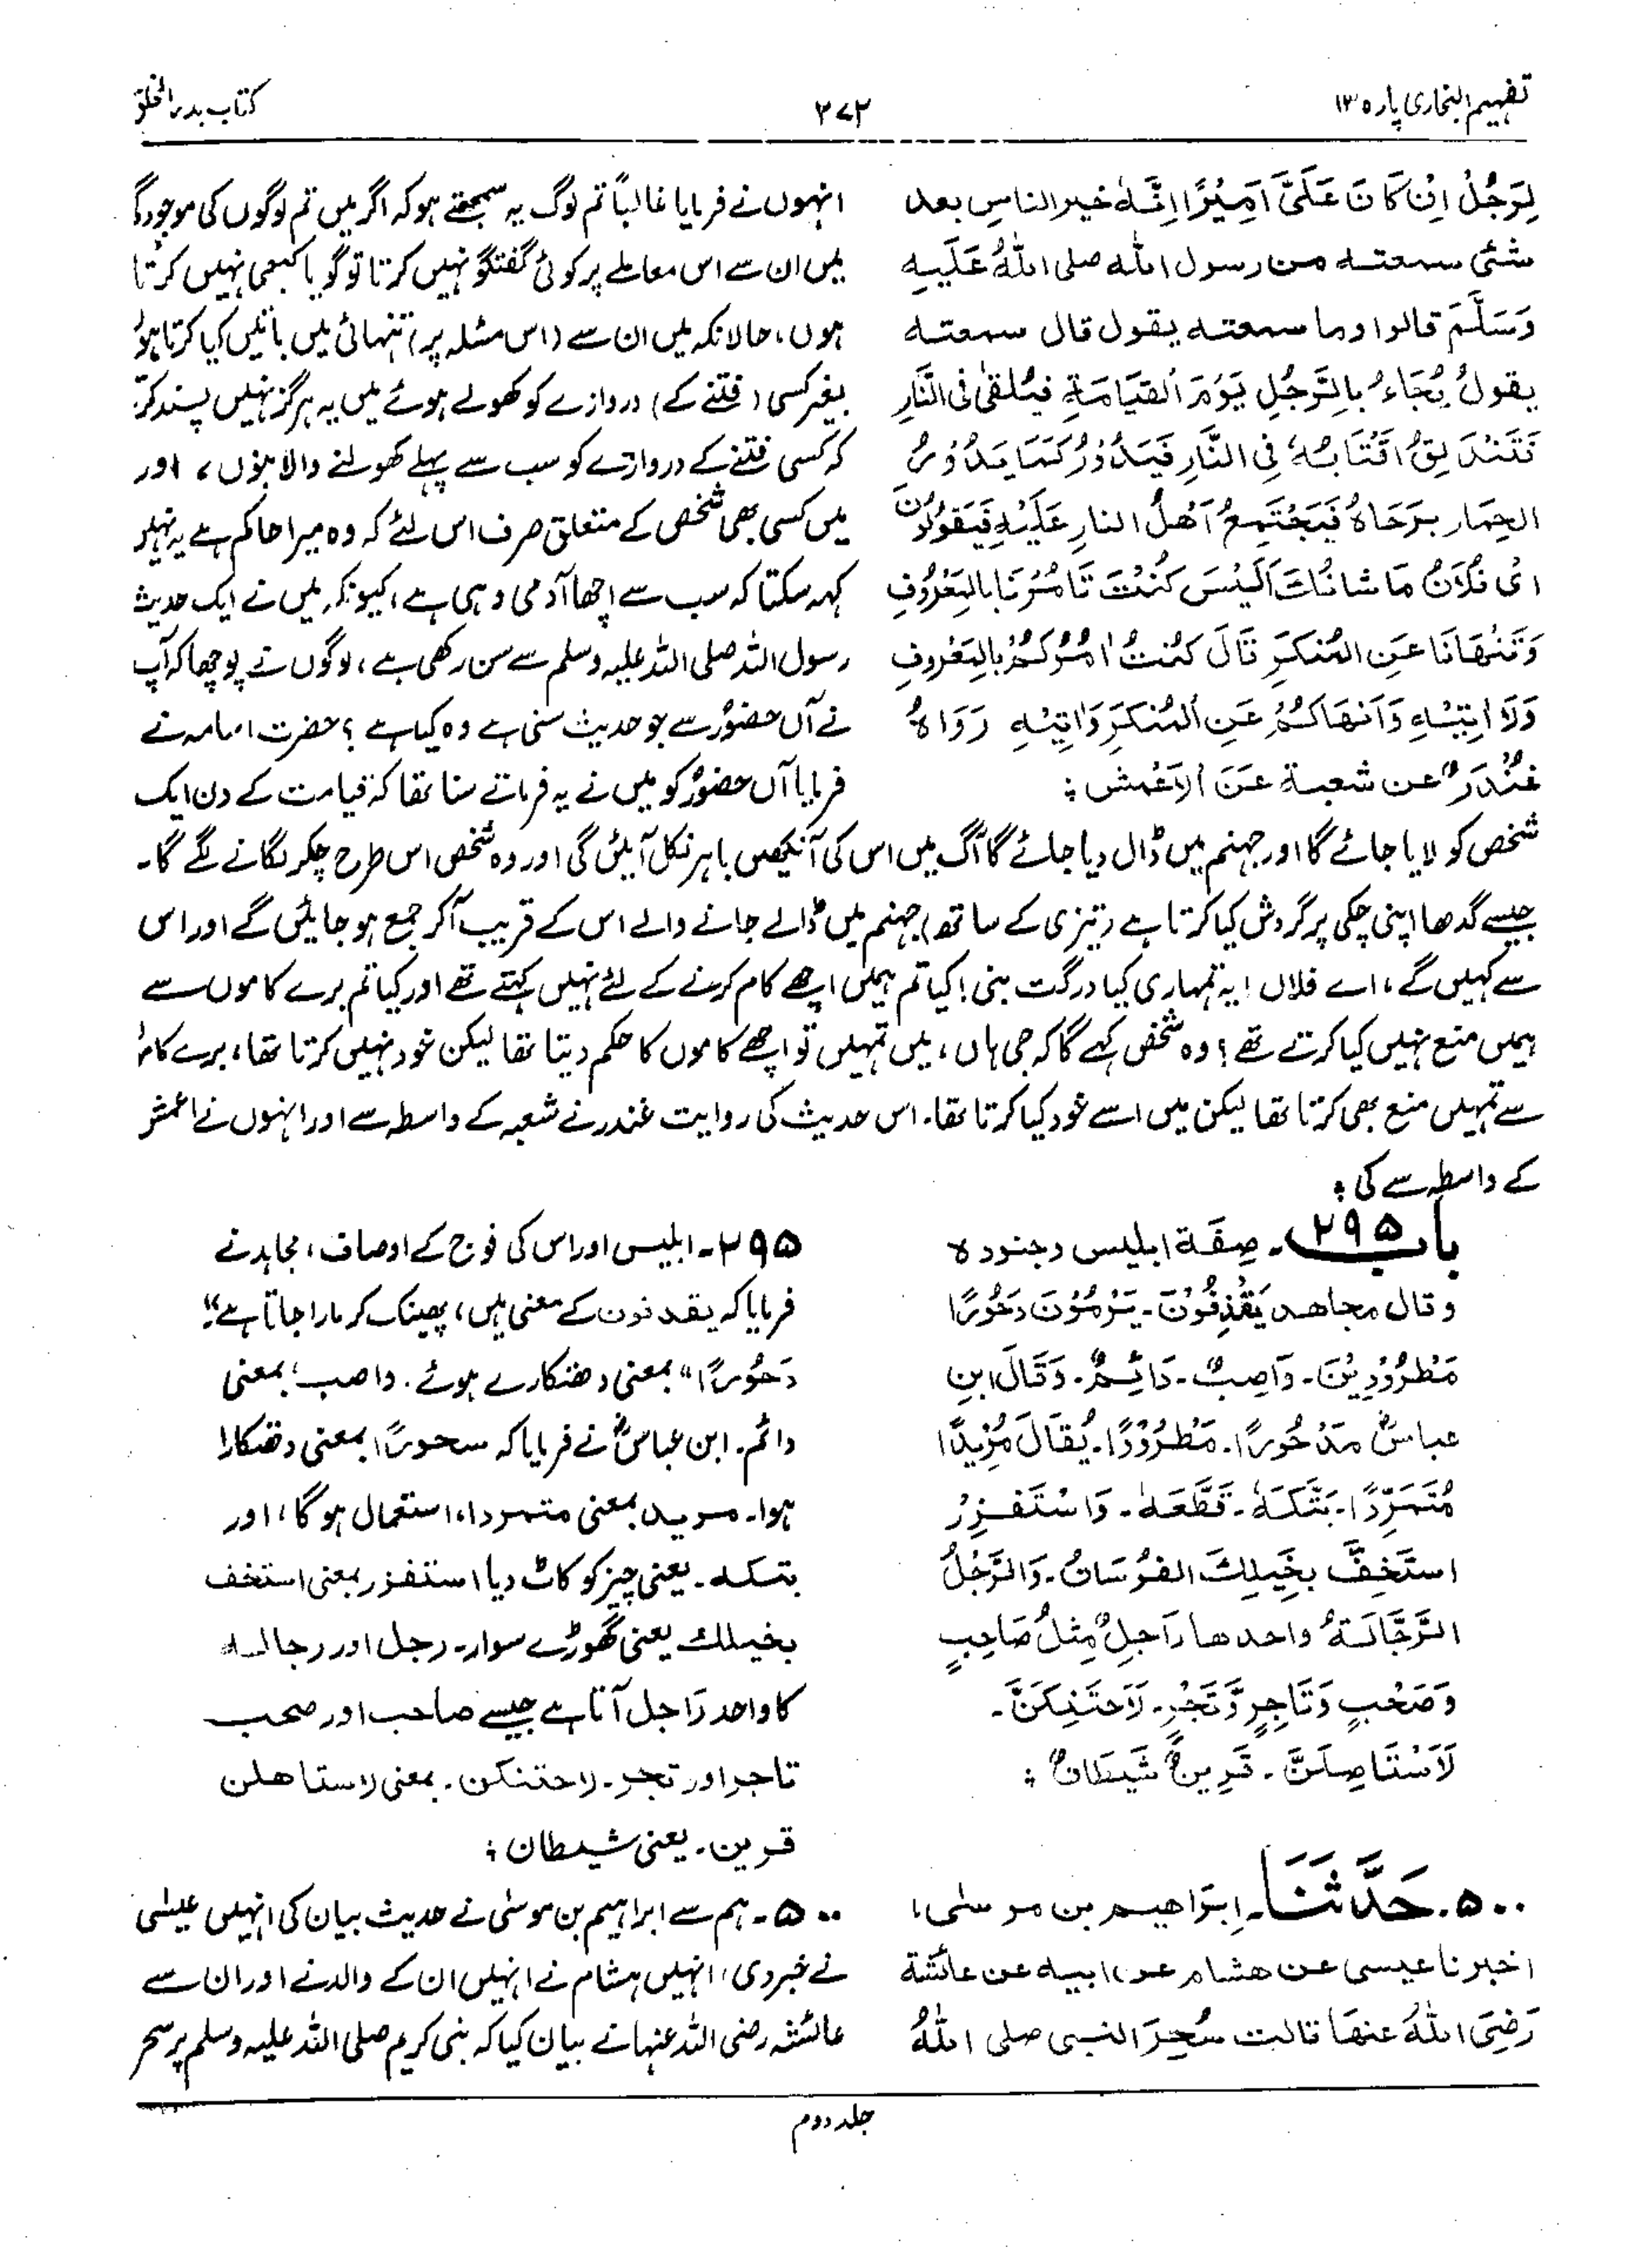 تفہیم البخاری پارہ ۱۳
۳۷۲
کتاب بدء الخلق
لِرَجُلٍ اِنْ کَانَ عَلَیَّ اَمِیْرًا اِنَّہٗ خیر الناسِ بعد
شئی سمعتہ من رسول اللہ صلی اللہُ عَلَیہِ
وَسَلَّمَ قالوا وما سمعتہ یقول قال سمعتہ
یقولُ یُجَاءُ بِالرَّجُلِ یَوْمَ القیَامَۃِ فیُلقیٰ فی النَّارِ
فَتَنْدَلِقُ اَقْتَابُہٗ فِی النَّارِ فَیَدُوْرُ کَمَا یَدُوْرُ
الحِمَار بِرَحَاہُ فَیَجْتَمِعُ اَھْلُ النارِ عَلَیْہِ فَیَقُوْلُوْنَ
ای فُلَانُ مَا شانُکَ اَلَیْسَ کُنْتَ تَامُرُنَا بِالمَعْرُوفِ
وَتَنْہَانَا عَنِ المُنْکَرِ قَالَ کُنتُ اٰمُرُکُمْ بِالمَعْرُوفِ
وَلَا اٰتِیْہِ وَاَنھَاکُمْ عَنِ المُنْکَرِ وَاٰتِیْہِ رَوَاہُ
غُنْدَرٌ عن شعبۃ عَنَ الاَعْمَش :
انہوں نے فرمایا غالباً تم لوگ یہ سمجھتے ہو کہ اگر میں تم لوگوں کی موجودگی
میں ان سے اس معاملے پر کوئی گفتگو نہیں کرتا تو گویا کبھی نہیں کرتا
ہوں، حالانکہ میں ان سے (اس مسئلہ پر) تنہائی میں باتیں کیا کرتا ہوں
بغیر کسی (فتنے کے) دروازے کو کھولے ہوئے میں یہ ہرگز نہیں پسند کرتا
کہ کسی فتنے کے دروازے کو سب سے پہلے کھولنے والا بنوں، اور
میں کسی بھی شخص کے متعلق صرف اس لئے کہ وہ میرا حاکم ہے یہ نہیں
کہہ سکتا کہ سب سے اچھا آدمی وہی ہے، کیونکہ میں نے ایک حدیث
رسول اللہ صلی اللہ علیہ وسلم سے سن رکھی ہے، لوگوں نے پوچھا کہ آپ
نے آں حضورؐ سے جو حدیث سنی ہے وہ کیا ہے ؟ حضرت اسامہ نے
فرمایا آں حضورؐ کو میں نے یہ فرماتے سنا تھا کہ قیامت کے دن ایک
شخص کو لایا جائے گا اور جہنم میں ڈال دیا جائے گا آگ میں اس کی آنکھیں باہر نکل آئیں گی اور وہ شخص اس طرح چکر لگانے لگے گا۔
جیسے گدھا اپنی چکی پر گردش کیا کرتا ہے (تیزی کے ساتھ) جہنم میں ڈالے جانے والے اس کے قریب آکر جمع ہو جائیں گے اور اس
سے کہیں گے، اے فلاں ! یہ تمہاری کیا درگت بنی ! کیا تم ہمیں اچھے کام کرنے کے لئے نہیں کہتے تھے اور کیا تم برے کاموں سے
ہمیں منع نہیں کیا کرتے تھے ؟ وہ شخص کہے گا کہ جی ہاں، میں تمہیں تو اچھے کاموں کا حکم دیتا تھا لیکن خود نہیں کرتا تھا، برے کاموں
سے تمہیں منع بھی کرتا تھا لیکن میں اسے خود کیا کرتا تھا۔ اس حدیث کی روایت غندر نے شعبہ کے واسطہ سے اور انہوں نے اعمش
کے واسطہ سے کی :
باب ۲۹۵۔ صِفَۃ ابلیس وجنودہ
وقال مجاھد یَقْذِفُوْنَ۔ یَرْمُوْنَ دَحُوْرًا
مَطْرُوْدِیْنَ۔ وَاصِبٌ۔ دَائِمٌ۔ وَقَالَ ابنِ
عباسؓ مَدْحُورًا۔ مَطْرُوْدًا۔ یُقَالَ مُرِیدًا
مُتَمَرِّدًا۔ بَتَّکَہٗ۔ قَطَّعَہٗ۔ وَاسْتَفْزِزُ
استَخِفَّ بخَیلِکَ الفُرْسَانُ۔ وَالرَّجُلُ
الرَّجَّالَۃُ واحدھا رَاجِلٌ مِثلُ صَاحِبٍ
وَصَحْبٍ وَتَاجِرٍ وَّتَجْرٍ۔ لَاَحتَنِکَنَّ۔
لَاَسْتَاصِلَنَّ۔ قَرِینٌ شَیطَانٌ :
۲۹۵۔ ابلیس اور اس کی فوج کے اوصاف، مجاہد نے
فرمایا کہ یقذفون کے معنی ہیں، پھینک کر مارا جاتا ہے"
دَحُوْرًا" بمعنی دھتکارے ہوئے. واصب؛ بمعنی
دائم۔ ابن عباسؓ نے فرمایا کہ سحورًا بمعنی دھتکارا
ہوا۔ مرید بمعنی متمردا، استعمال ہوگا، اور
بتکہ۔ یعنی چیز کو کاٹ دیا استفزر بمعنی استخف
بخیلك یعنی گھوڑے سوار۔ رجل اور رجالہ
کا واحد رَاجل آتا ہے جیسے صاحب اور صحب
تاجر اور تجر۔ لاحتنکن۔ بمعنی لاستاھلن
قرین۔ یعنی شیطان :
۵۰۰۔ حَدَّثَنَا۔ اِبرَاھیم بن موسٰی،
اخبرنا عیسی عن ھشام عن ابیہ عن عائشۃ
رَضِیَ اللہُ عنھَا قالت سُحِرَ النبی صلی اللہُ
۵۰۰۔ ہم سے ابراہیم بن موسیٰ نے حدیث بیان کی انہیں عیسٰی
نے خبر دی، انہیں ہشام نے انہیں ان کے والد نے اور ان سے
عائشہ رضی اللہ عنہا نے بیان کیا کہ نبی کریم صلی اللہ علیہ وسلم پر سحر
جلد دوم